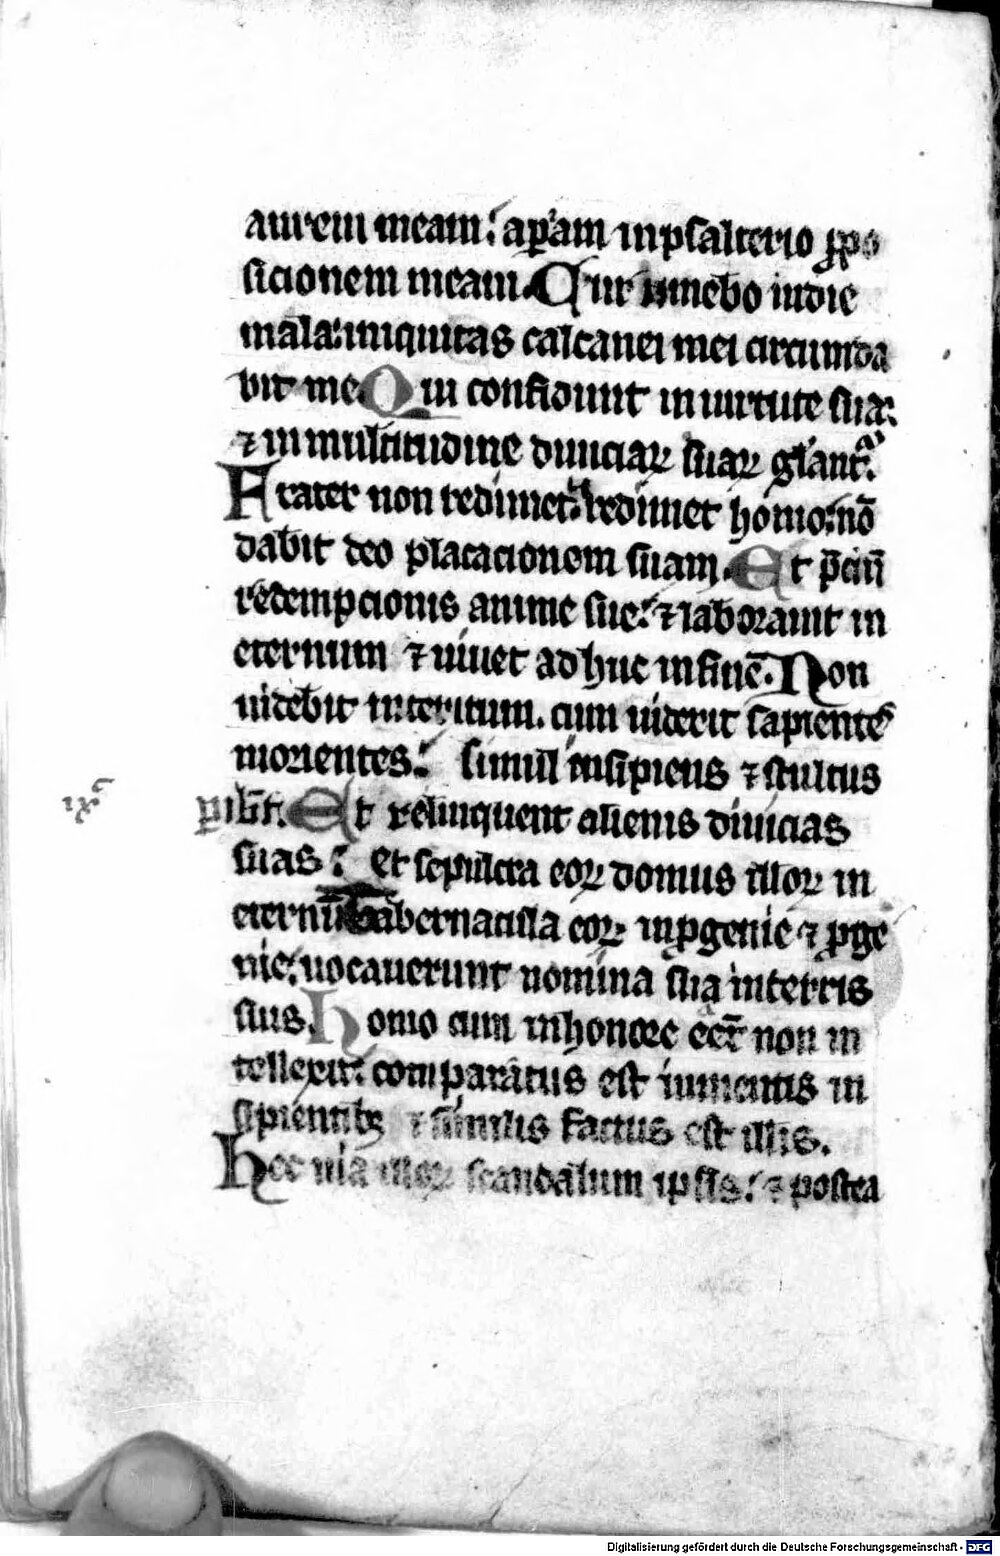 aurem meam: ap̲iam in psalterio p̲po
sicionem meam. Cur timebo in die
mala: iniquitas calcanei mei circumda
bit me. Qui confidunt in uirtute sua:
⁊ in multitudine diuiciaꝝ suaꝝ gl̄ant̃.
Frater non redimet: redimet homo: nō
dabit deo placacionem suam. Et p̄ciū
redempcionis anime sue: ⁊ laborauit in
eternum ⁊ uiuet adhuc in finē. Non
uidebit interitum. cum uiderit sapientes
morientes: simul insipiens ⁊ stultus
ix
ꝑibūt. Et relinquent alienis diuicias
suas: et sepulcra eoꝝ domus illoꝝ in
eternū. tabernacula eoꝝ in ꝓgenie ⁊ ꝓge
nie: uocauerunt nomina sua in terris
suis. Homo cum in honore eēt non in
tellexit: comparatus est iumentis in
sipientibꝫ ⁊ similis factus est illis.
Hec uia illoꝝ scandalum ipsis: ⁊ postea
Digitalisierung gefördert durch die Deutsche Forschungsgemeinschaft - DFG